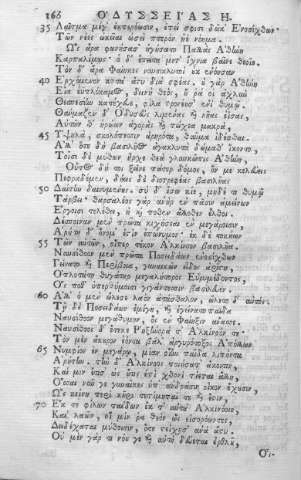 166 ὈΔΥΣΣΕΙΑΣ Η.
35 Λαῖτμα μέγ' ἐκπερόωσιν, ἐπεί σφισι δῶκ' Ἐνοσίχθων·
Τῶν νέες ὠκεῖαι ὡσεὶ πτερὸν ἠὲ νόημα.
Ὣς ἄρα φωνήσασ' ἡγήσατο Παλλὰς Ἀθήνη
Καρπαλίμως· ὁ δ' ἔπειτα μετ' ἴχνια βαῖνε θεοῖο.
Τὸν δ' ἄρα Φαίηκες ναυσικλυτοὶ οὐκ ἐνόησαν
40 Ἐρχόμενον κατὰ ἄστυ διὰ σφέας· οὐ γὰρ Ἀθήνη
Εἴα ἐϋπλόκαμος, δεινὴ θεὸς, ἥ ῥά οἱ ἀχλὺν
Θεσπεσίην κατέχευε, φίλα φρονέουσ' ἐνὶ θυμῷ.
Θαύμαζεν δ' Ὀδυσεὺς λιμένας καὶ νῆας ἐΐσας,
Αὐτῶν θ' ἡρώων ἀγορὰς καὶ τείχεα μακρὰ,
45 Ὑψηλὰ, σκολόπεσσιν ἀρηρότα, θαῦμα ἰδέσθαι.
Ἀλλ' ὅτε δὴ βασιλῆος ἀγακλυτὰ δώμαθ' ἵκοντο,
Τοῖσι δὲ μύθων ἦρχε θεὰ γλαυκῶπις Ἀθήνη,
Οὗτος δή τοι ξεῖνε πάτερ δόμος, ὅν με κελεύεις
Πεφραδέμεν, δήεις δὲ διοτρεφέας βασιλῆας
50 Δαίτην δαινυμένους· σὺ δ' ἔσω κίε, μηδέ τι θυμῷ
Τάρβει· θαρσαλέος γὰρ ἀνὴρ ἐν πᾶσιν ἀμείνων
Ἔργοισι τελέθει, εἰ καί ποθεν ἄλλοθεν ἔλθοι.
Δέσποιναν μὲν πρῶτα κιχήσεαι ἐν μεγάροισιν,
Ἀρήτη δ' ὄνομ' ἐστὶν ἐπώνυμον· ἐκ δὲ τοκήων
55 Τῶν αὐτῶν, οἵπερ τέκον Ἀλκίνοον βασιλῆα.
Ναυσίθοον μὲν πρῶτα Ποσειδάων ἐνοσίχθων
Γείνατο καὶ Περίβοια, γυναικῶν εἶδος ἀρίστη,
Ὁπλοτάτη θυγάτηρ μεγαλήτορος Εὐρυμέδοντος,
Ὅς ποθ' ὑπερθύμοισι γιγάντεσσιν βασίλευεν.
60 Ἀλλ' ὁ μὲν ὤλεσε λαὸν ἀτάσθαλον, ὤλετο δ' αὐτός.
Τῇ δὲ Ποσειδάων ἐμίγη, καὶ ἐγείνατο παῖδα
Ναυσίθοον μεγάθυμον, ὃς ἐν Φαίηξιν ἄνασσε.
Ναυσίθοος δ' ἔτεκε Ῥηξήνορά τ' Ἀλκίνοόν τε·
Τὸν μὲν ἄκουρον ἐόντα βάλ' ἀργυρότοξος Ἀπόλλων
65 Νυμφίον ἐν μεγάρῳ, μίαν οἴην παῖδα λιπόντα
Ἀρήτην· τὴν δ' Ἀλκίνοος ποιήσατ' ἄκοιτιν,
Καί μιν ἔτισ' ὡς οὔτις ἐπὶ χθονὶ τίεται ἄλλη,
Ὅσσαι νῦν γε γυναῖκες ὑπ' ἀνδράσιν οἶκον ἔχουσιν,
Ὣς κείνη περὶ κῆρι τετίμηταί τε καὶ ἐστὶν,
70 Ἔκ τε φίλων παίδων ἔκ τ' αὐτοῦ Ἀλκινόοιο,
Καὶ λαῶν, οἵ μίν ῥα θεὸν ὣς εἰσορόωντες,
Δειδέχαται μύθοισιν, ὅτε στείχῃσ' ἀνὰ ἄστυ·
Οὐ μὲν γάρ τι νόου γε καὶ αὐτὴ δεύεται ἐσθλοῦ,